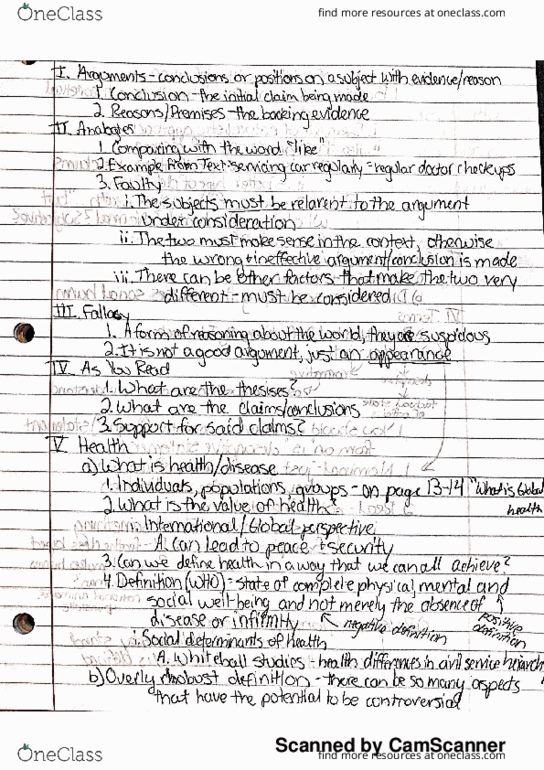 OneClass
find more resources at oneclass.com
I. Arguments - conclusions or positions on a subject with evidence/reason
1. Conclusion - the initial claim being made
2. Reasons/Premises - the backing evidence
II. Analogies
1. Comparing with the word "like"
2. Example from Text: servicing car regularly = regular doctor checkups
3. Faulty
i. The subjects must be relevant to the argument
under consideration
ii. The two must make sense in the context, otherwise
the wrong + ineffective argument/conclusion is made
iii. There can be other factors that make the two very
different - must be considered
III. Fallacy
1. A form of reasoning about the world, they are suspicious
2. It is not a good argument, just an appearance
IV. As You Read
1. What are the thesises?
2. What are the claims/conclusions
3. Support for said claims?
V. Health
a) What is health/disease
1. Individuals, populations, groups - on page 13-14 "What is Global
health
2. What is the value of health
i. International/Global perspective
A. Can lead to peace + security
3. Can we define health in a way that we can all achieve?
4. Definition (WHO) = state of complete physical, mental and
social well-being and not merely the absence of
disease or infirmity
negative definition
positive
definition
i. Social determinants of health
A. Whitehall studies - health differences in civil service
b) Overly robust definition - there can be so many aspects
that have the potential to be controversial
Scanned by CamScanner
OneClass
find more resources at oneclass.com